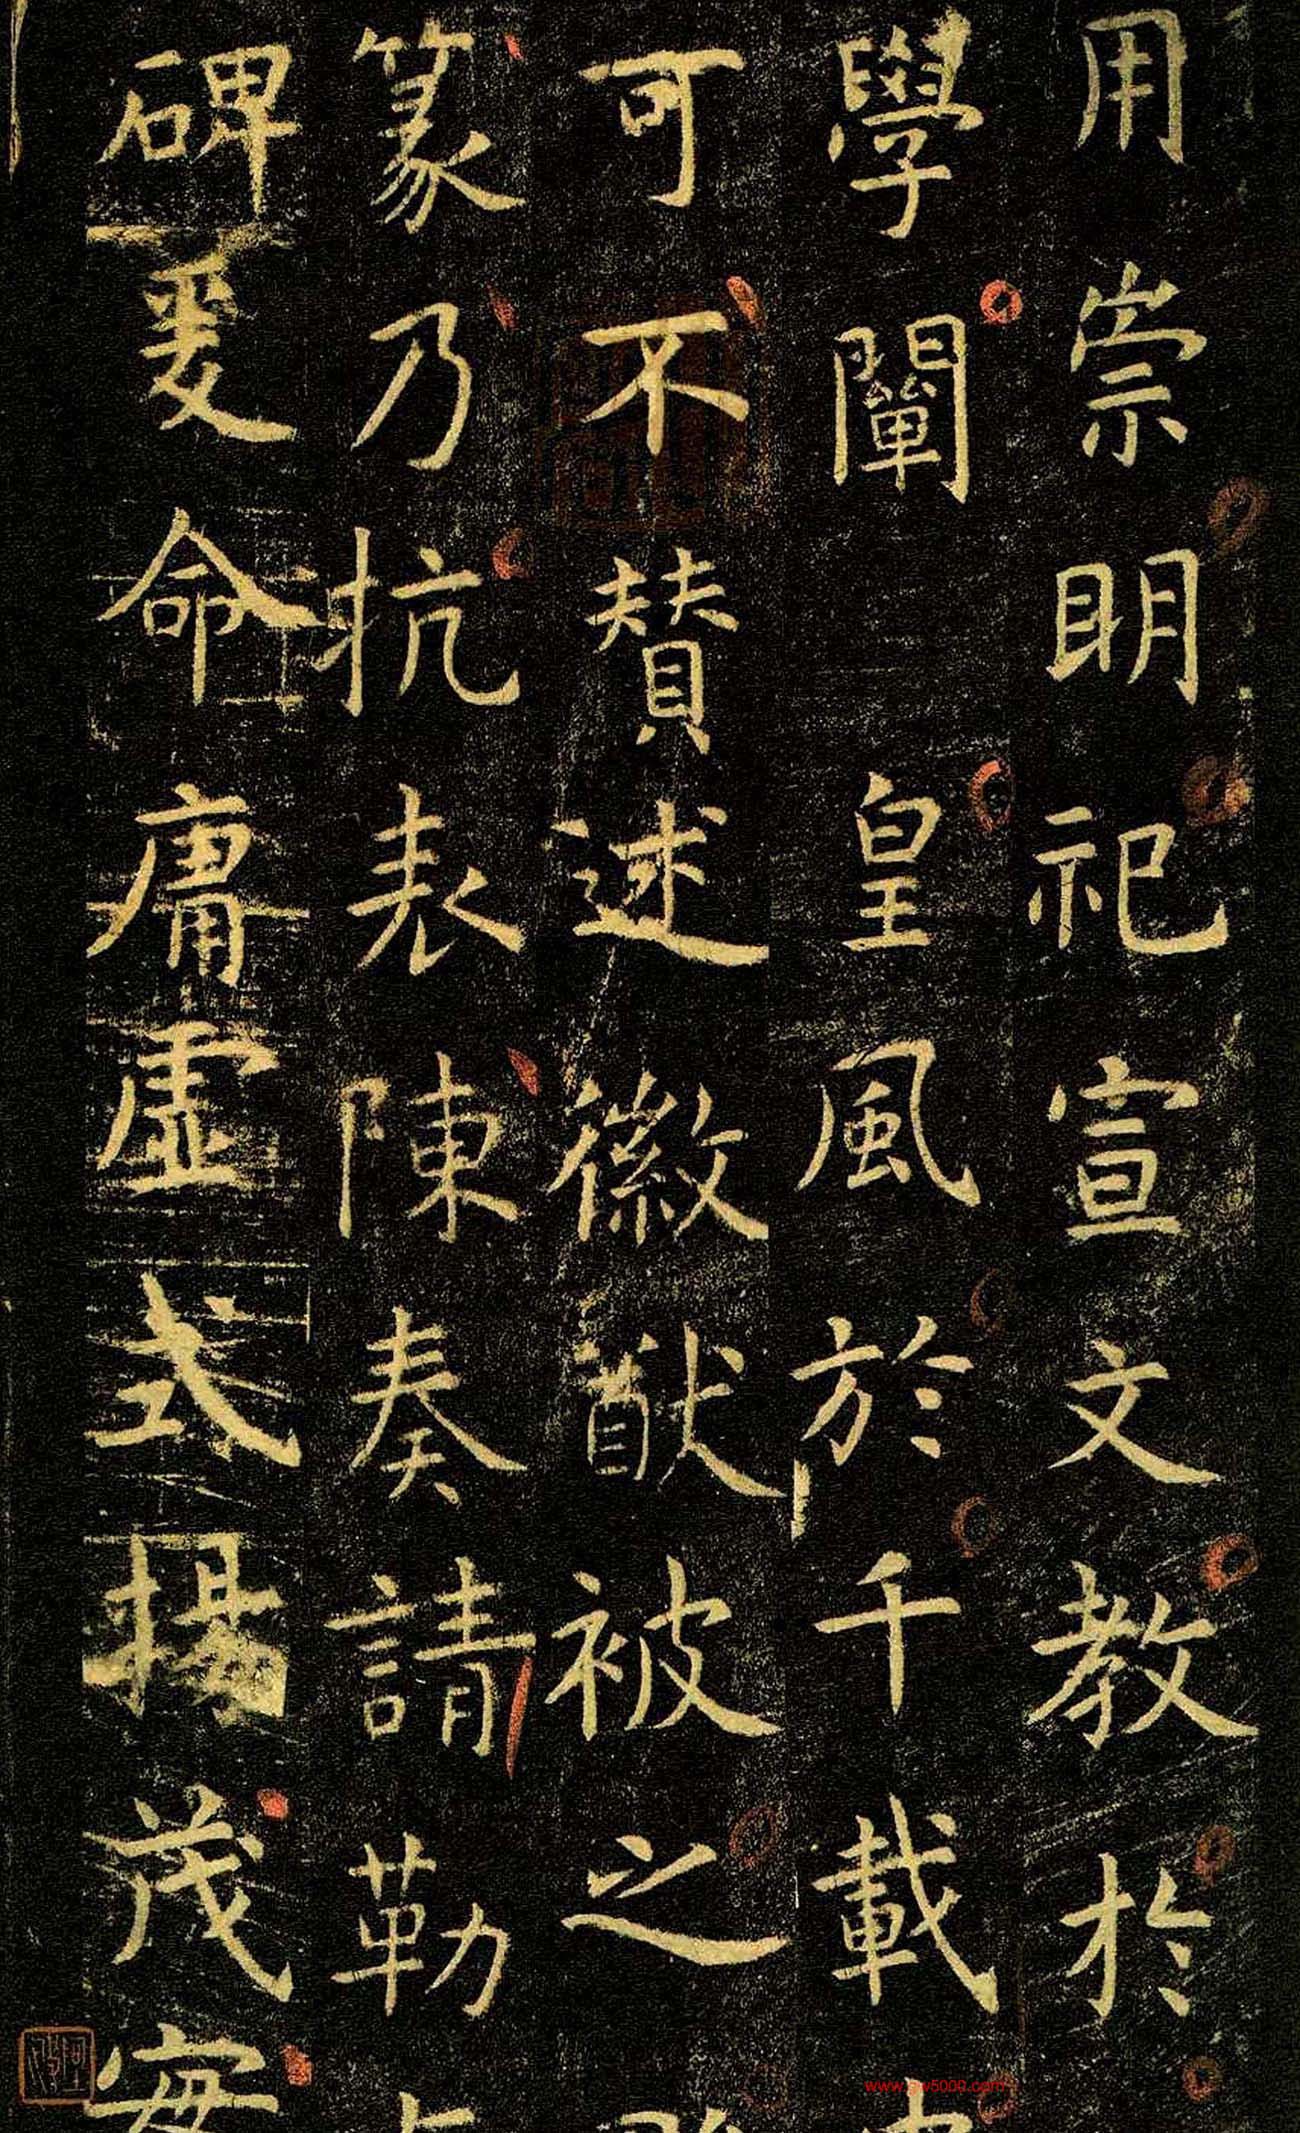 用崇明祀宣文教於
學闡皇風於千載
可不贊述徽猷被之
篆乃抗表陳奏請勒
碑爰命庸虛式揚茂
www.yw5000.com